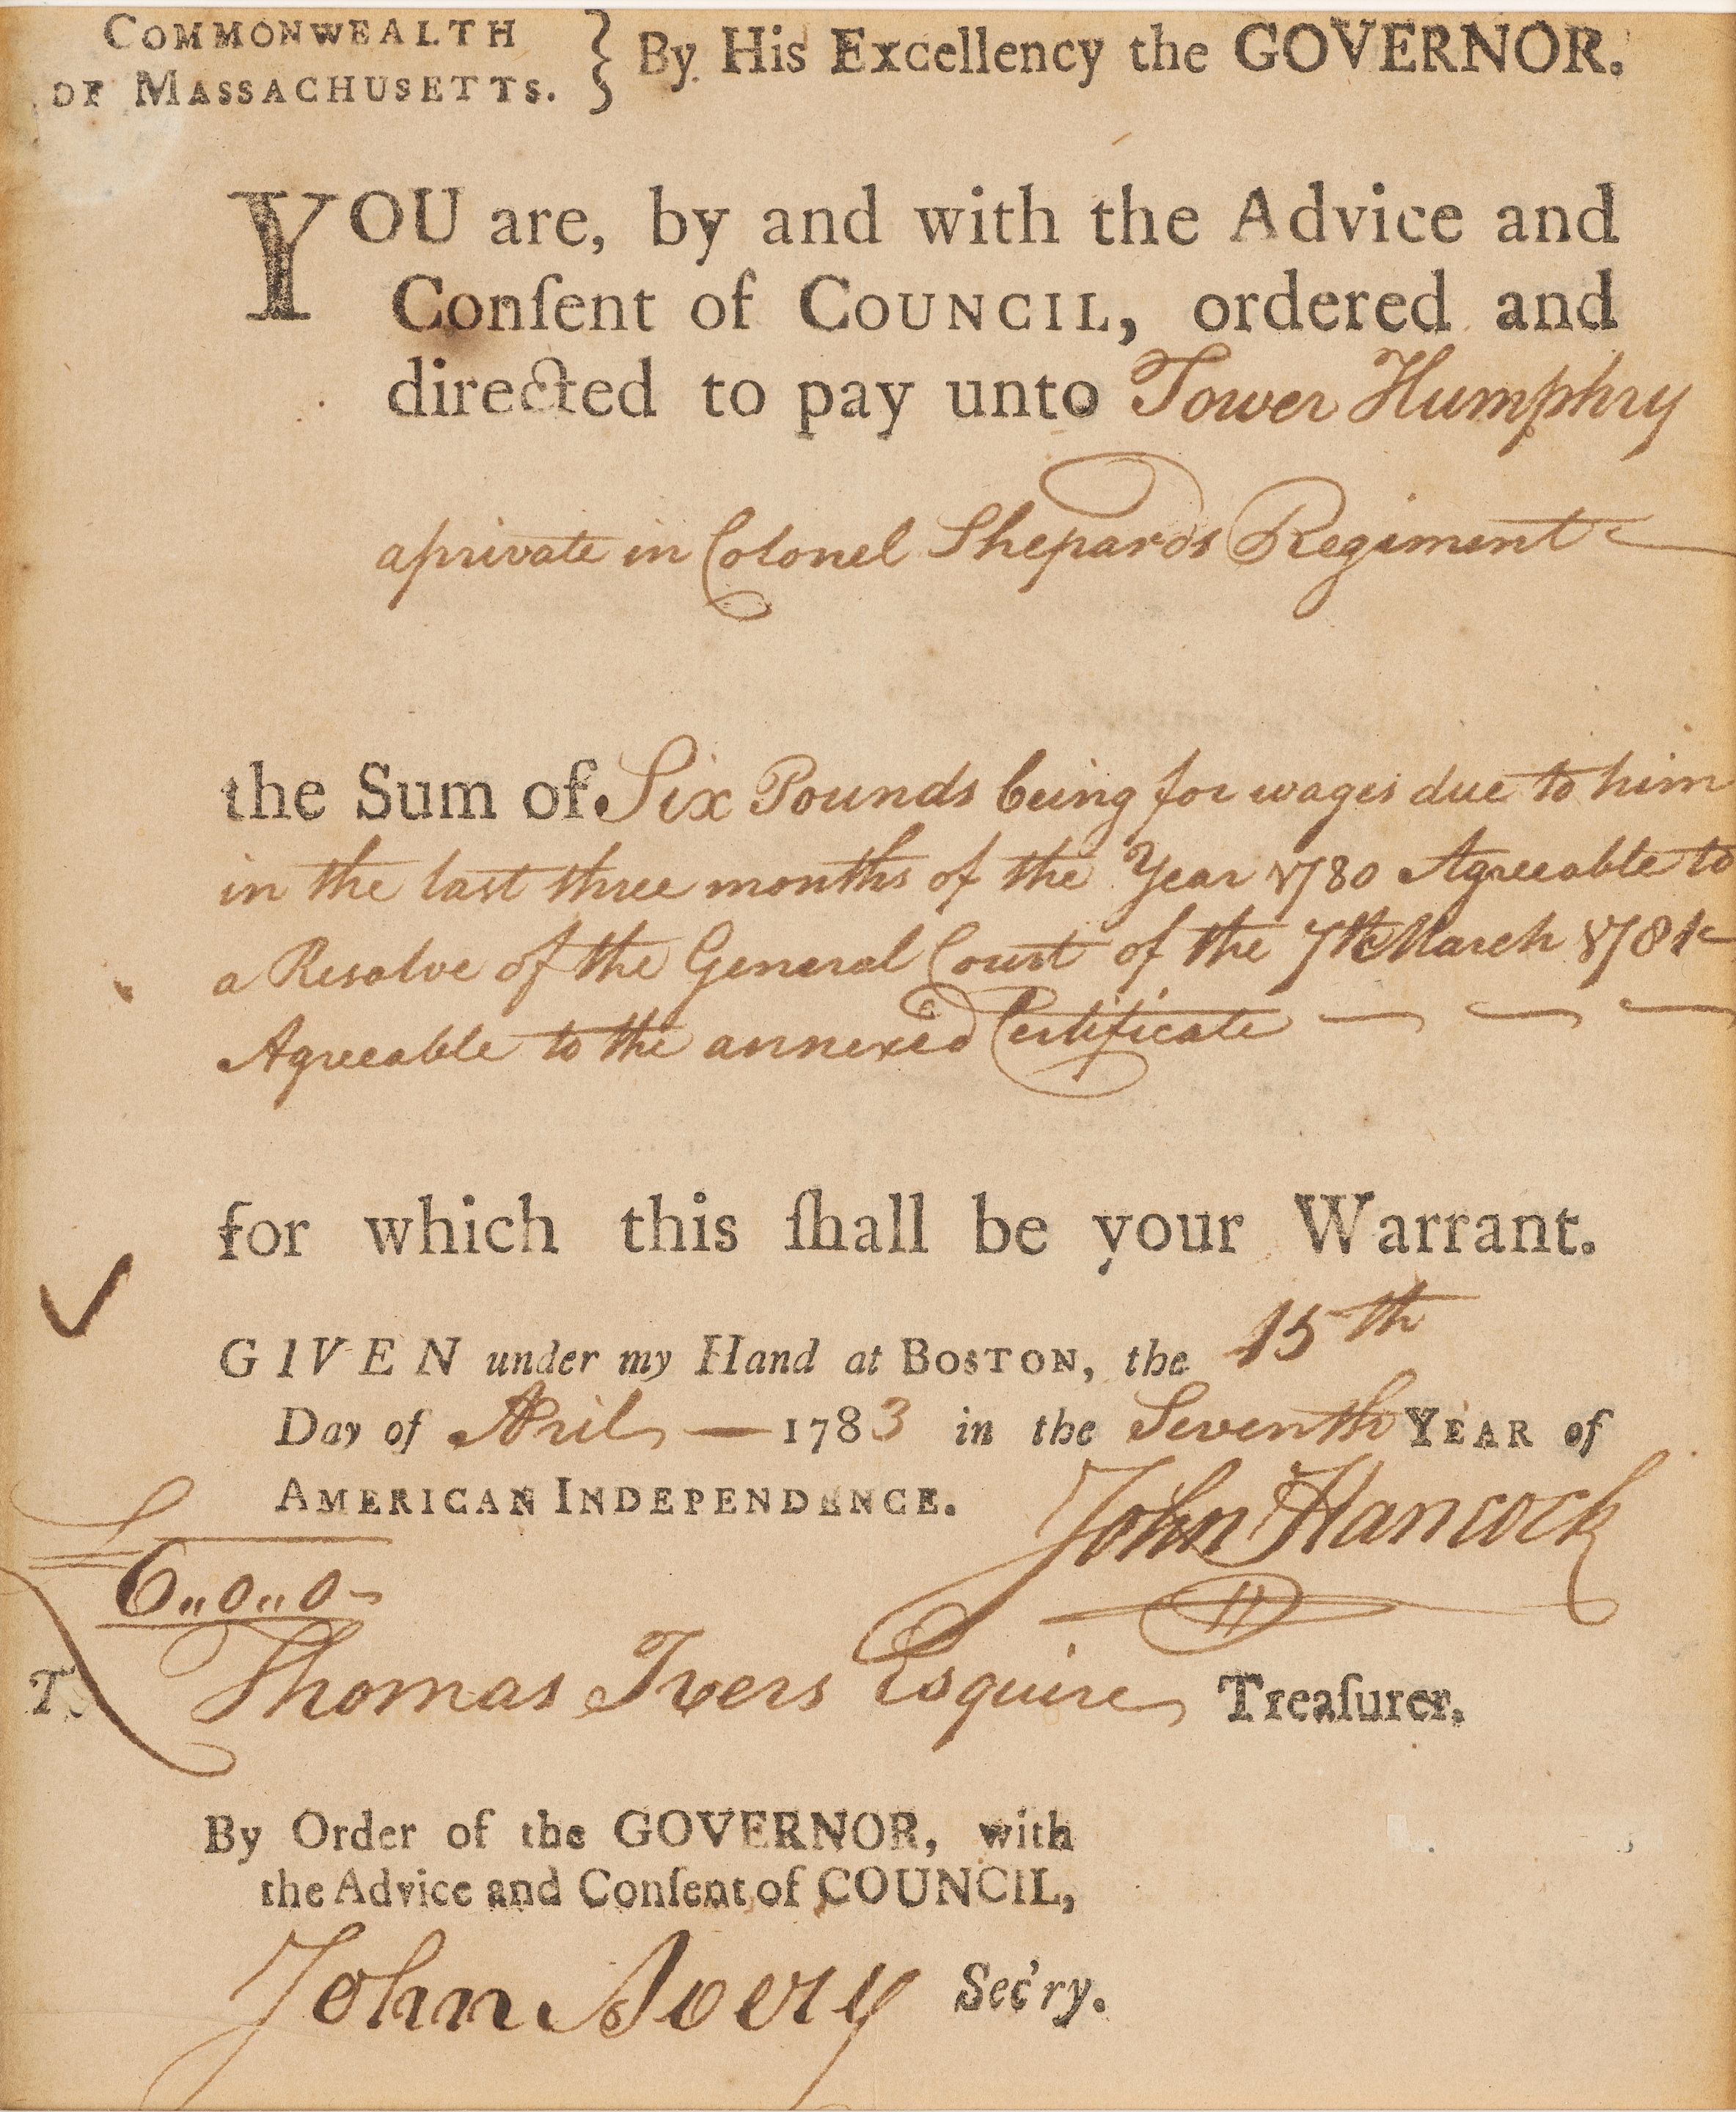 COMMONWEALTH
OF MASSACHUSETTS. } By His Excellency the GOVERNOR.
YOU are, by and with the Advice and
Conſent of COUNCIL, ordered and
directed to pay unto Tower Humphry
a private in Colonel Shepards Regiment
the Sum of Six Pounds being for wages due to him
in the last three months of the Year 1780 Agreeable to
a Resolve of the General Court of the 7th March 1781
Agreeable to the annexed Certificate — — —
for which this ſhall be your Warrant.
GIVEN under my Hand at BOSTON, the 15th
Day of April — 1783 in the Seventh YEAR of
AMERICAN INDEPENDENCE.
John Hancock
£
6,,0,,0
T Thomas Ivers Esquire Treaſurer.
By Order of the GOVERNOR, with
the Advice and Conſent of COUNCIL,
John Avery Sec'ry.